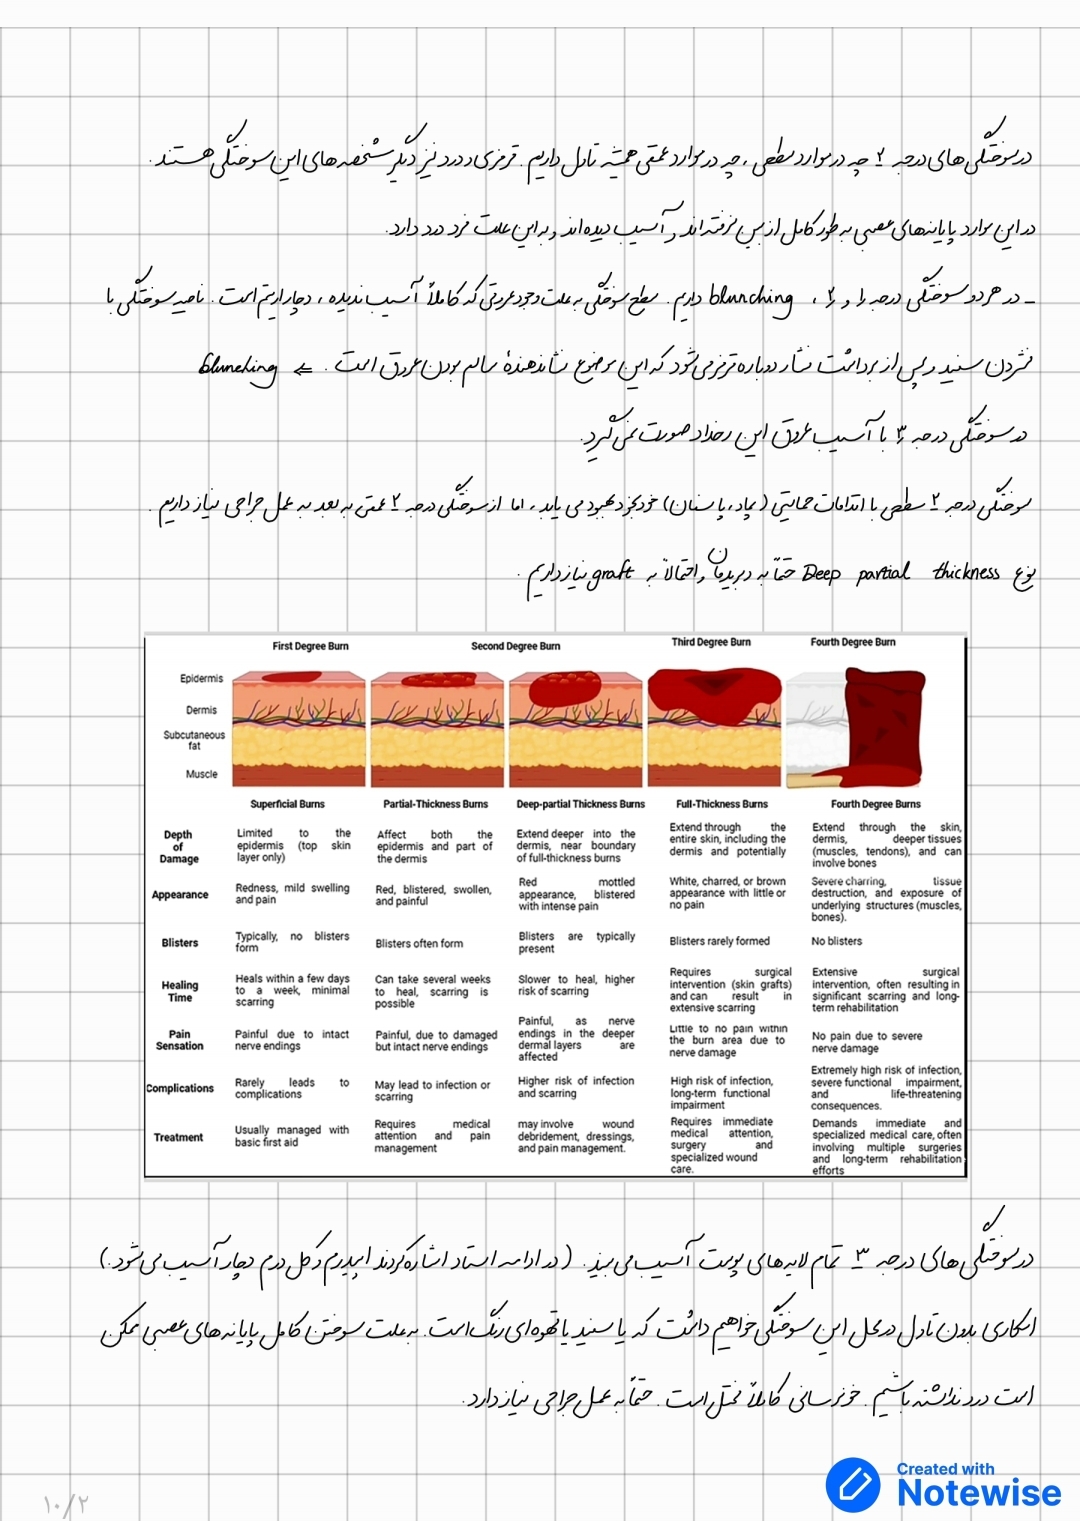 در سوختگی های درجه ۲ چه در موارد سطحی ، چه در موارد عمقی همیشه تاول داریم. قرمزی و درد نیز دیگر مشخصه های این سوختگی هستند.
در این موارد پایانه‌های عصبی به طور کامل از بین نرفته‌اند و آسیب دیده‌اند و به این علت فرد درد دارد.
- در هر دو سوختگی درجه ۱ و ۲ ، blunching داریم. سطح سوختگی به علت وجود عروقی که کاملاً آسیب ندیده ، دچار اریتم است. ناحیه سوختگی با
فشردن سفید و پس از برداشت فشار دوباره قرمز می‌شود که این موضوع نشاندهندهٔ سالم بودن عروق است. ⇐ blunching
در سوختگی درجه ۳ با آسیب عروق این رخداد صورت نمی گیرد.
سوختگی درجه ۲ سطحی با اقدامات حمایتی (پماد، پانسمان) خودبخود بهبود می یابد ، اما از سوختگی درجه ۲ عمقی به بعد به عمل جراحی نیاز داریم.
نوع Deep partial thickness حتماً به دبریدمان و احتمالاً به graft نیاز داریم.
First Degree Burn Second Degree Burn Third Degree Burn Fourth Degree Burn
Epidermis
Dermis
Subcutaneous
fat
Muscle
Superficial Burns Partial-Thickness Burns Deep-partial Thickness Burns Full-Thickness Burns Fourth Degree Burns
Depth
of
Damage
Limited to the
epidermis (top skin
layer only)
Affect both the
epidermis and part of
the dermis
Extend deeper into the
dermis, near boundary
of full-thickness burns
Extend through the
entire skin, including the
dermis and potentially
Extend through the skin,
dermis, deeper tissues
(muscles, tendons), and can
involve bones
Appearance
Redness, mild swelling
and pain
Red, blistered, swollen,
and painful
Red mottled
appearance, blistered
with intense pain
White, charred, or brown
appearance with little or
no pain
Severe charring, tissue
destruction, and exposure of
underlying structures (muscles,
bones).
Blisters
Typically, no blisters
form
Blisters often form
Blisters are typically
present
Blisters rarely formed
No blisters
Healing
Time
Heals within a few days
to a week, minimal
scarring
Can take several weeks
to heal, scarring is
possible
Slower to heal, higher
risk of scarring
Requires surgical
intervention (skin grafts)
and can result in
extensive scarring
Extensive surgical
intervention, often resulting in
significant scarring and long-
term rehabilitation
Pain
Sensation
Painful due to intact
nerve endings
Painful, due to damaged
but intact nerve endings
Painful, as nerve
endings in the deeper
dermal layers are
affected
Little to no pain within
the burn area due to
nerve damage
No pain due to severe
nerve damage
Complications
Rarely leads to
complications
May lead to infection or
scarring
Higher risk of infection
and scarring
High risk of infection,
long-term functional
impairment
Extremely high risk of infection,
severe functional impairment,
and life-threatening
consequences.
Treatment
Usually managed with
basic first aid
Requires medical
attention and pain
management
may involve wound
debridement, dressings,
and pain management.
Requires immediate
medical attention,
surgery and
specialized wound
care.
Demands immediate and
specialized medical care, often
involving multiple surgeries
and long-term rehabilitation
efforts
در سوختگی های درجه ۳ تمام لایه های پوست آسیب می بیند. (در ادامه استاد اشاره کردند اپیدرم و کل درم دچار آسیب می شود.)
اسکاری بدون تاول در محل این سوختگی خواهیم داشت که یا سفید یا قهوه ای رنگ است. به علت سوختن کامل پایانه های عصبی ممکن
است درد نداشته باشیم. خونرسانی کاملاً مختل است. حتماً به عمل جراحی نیاز دارد.
Created with
Notewise
۱۰/۲